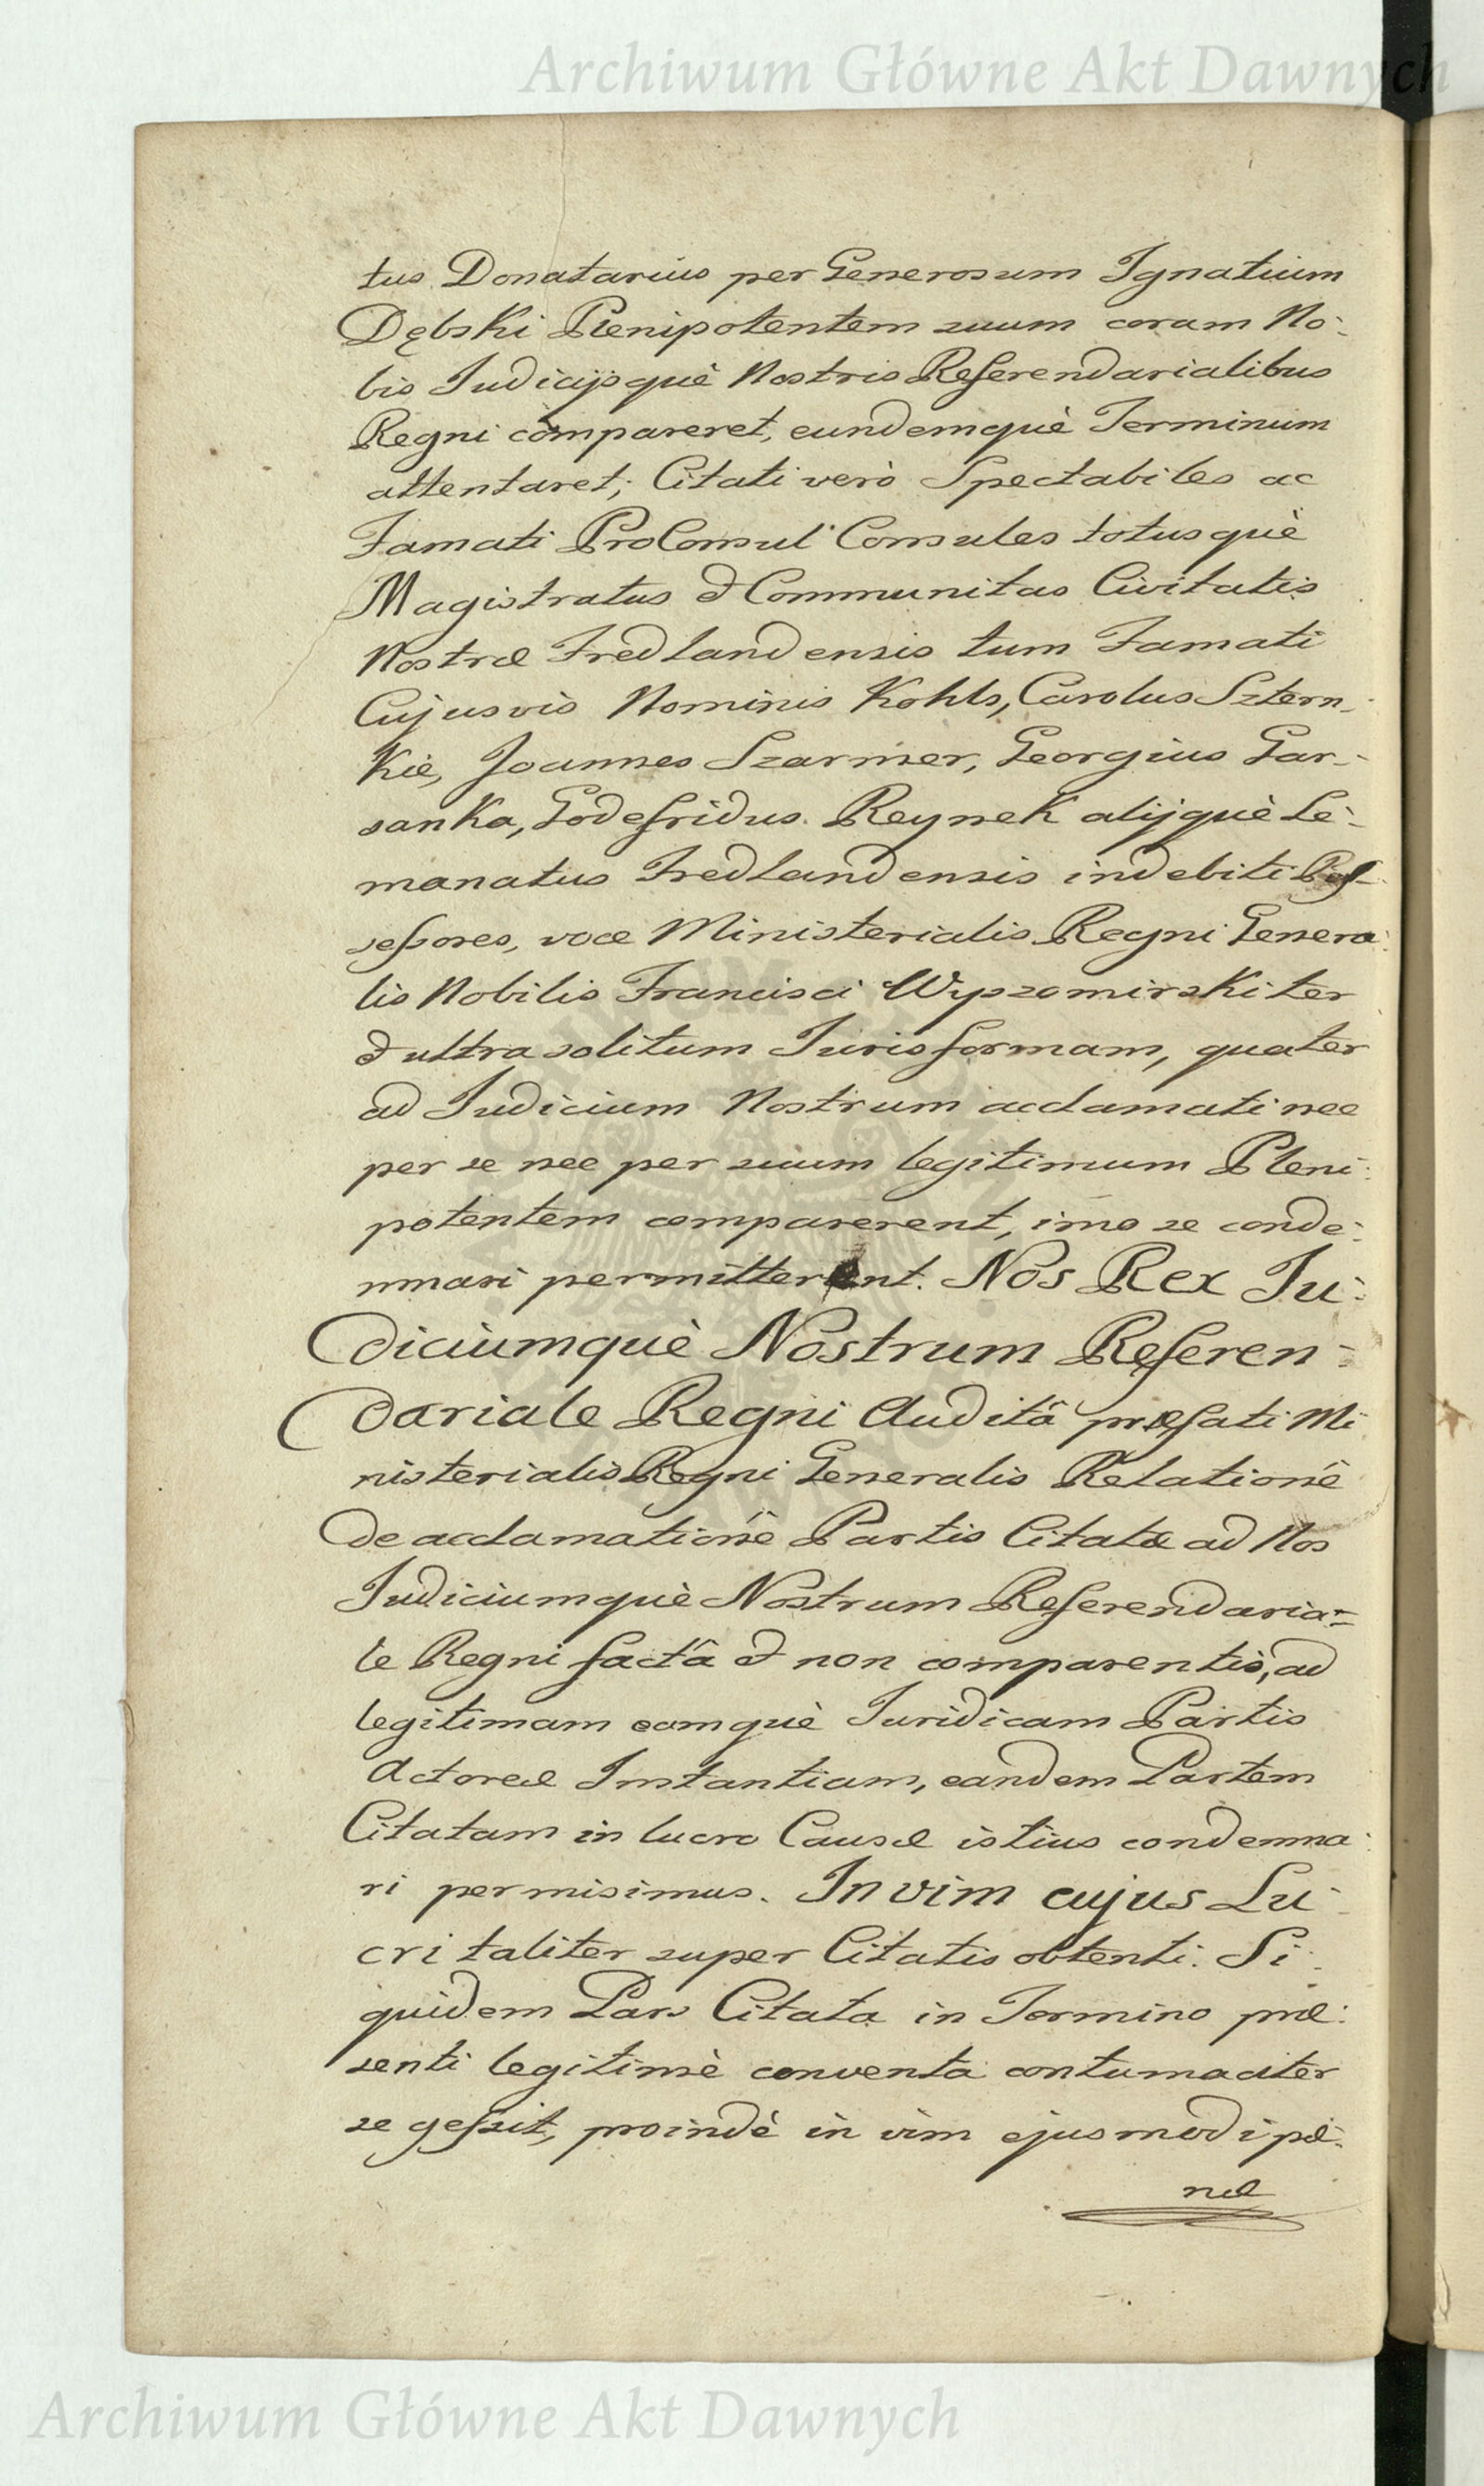 Archiwum Główne Akt Dawnych
tus Donatarius per Generosum Ignatium
Dębski Plenipotentem suum coram No:
bis Judicijsquè Nostris Referendarialibus
Regni compareret, eundemquè Terminum
attentaret; Citati verò Spectabiles ac
Famati ProConsul Consules totusquè
Magistratus & Communitas Civitatis
Nostræ Fredlandensis tum Famati
Cujusvis Nominis Kohls, Carolus Sztern-
kie, Joannes Szarmer, Georgius Gar-
sanka, Godefridus Reynek alijquè Le-
manatus Fredlandensis indebiti Pos-
seßores, voce Ministerialis Regni Genera:
lis Nobilis Francisci Wypzomirski ter
& ultra solitum Juris formam, quater
ad Judicium Nostrum acclamati nec
per se nec per suum legitimum Pleni:
potentem comparerent, imo se conde:
mnari permitterent. Nos Rex Ju:
diciumquè Nostrum Referen-
dariale Regni Auditâ præfati Mi
nisterialis Regni Generalis Relationê
de acclamationê Partis Citatæ ad Nos
Judiciumquè Nostrum Referendaria=
le Regni factâ & non comparentis, ad
legitimam eamquè Juridicam Partis
Actoreæ Instantiam, eandem Partem
Citatam in lucro Causæ istius condemna:
ri permisimus. In vim cujus Lu-
cri taliter super Citatis obtenti. Si:
quidem Pars Citata in Termino præ:
senti legitimè conventa contumaciter
se geßit, proindè in vim ejusmodi pæ:
næ
Archiwum Główne Akt Dawnych